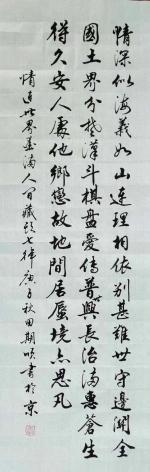 情深似海義如山連理相依別甚難世守邊關全
國土界分楚漢斗棋盤愛傳普興長治滿惠蒼生
得久安人處他鄉戀故地間居蜃境亦思凡
情連世界愛滿人間藏頭七律庚子秋田期書於京